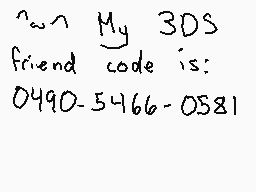 ^ω^ My 3DS
friend code is:
0490-5466-0581